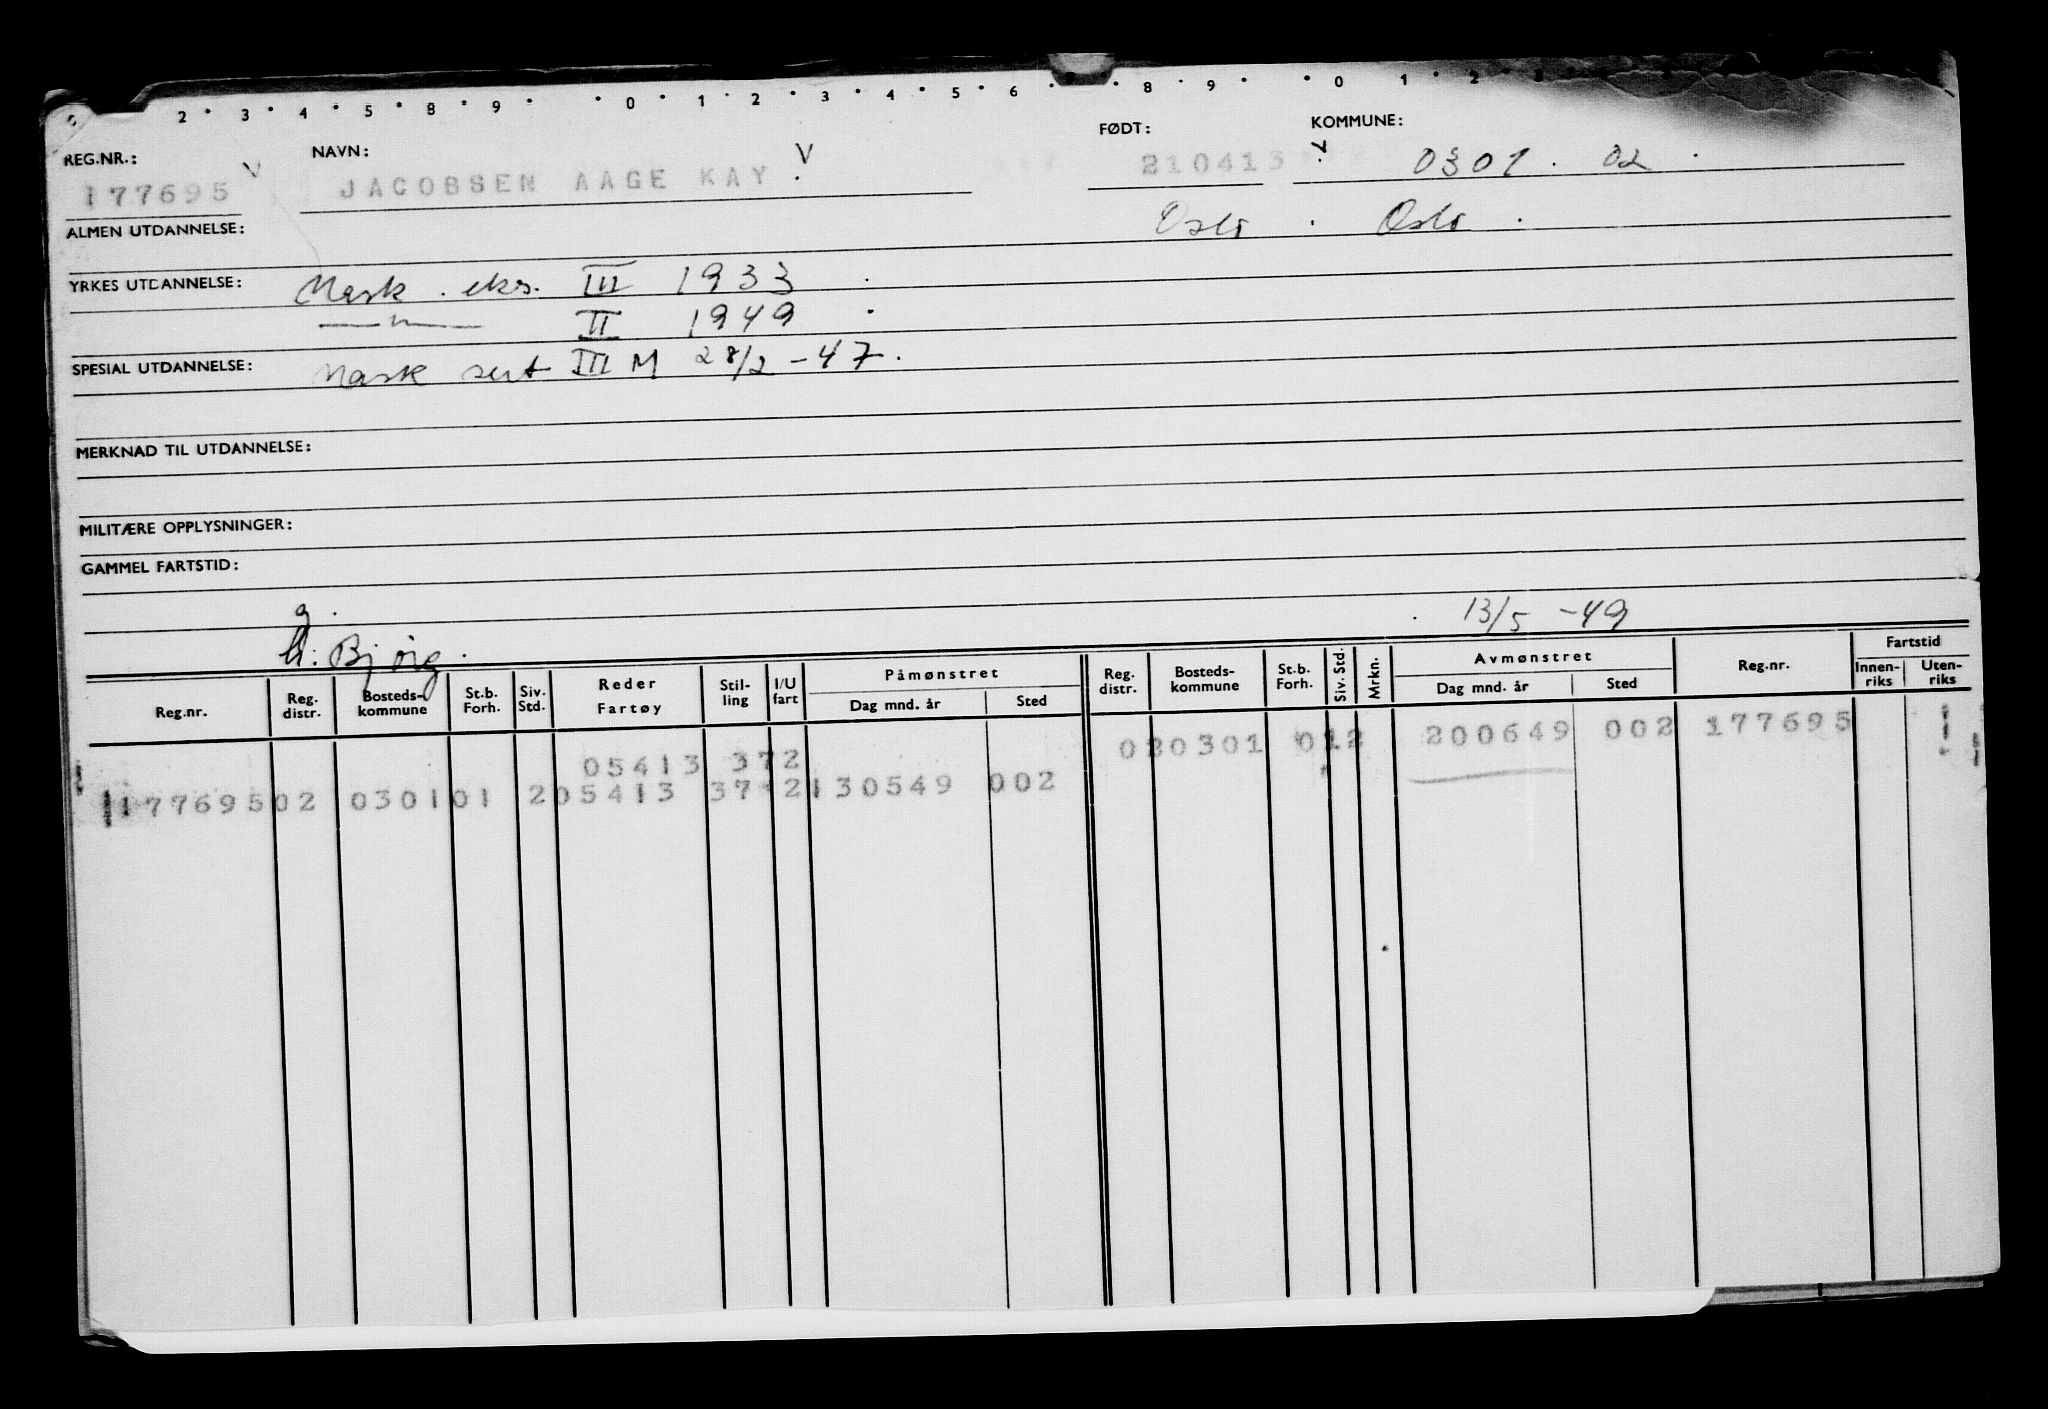 2 · 3 · 4 · 5 · 8 · 9 · · 0 · 1 · 2 · 3 · 4 · 5 · 6 · · 8 · 9 · · 0 1 · 2 · 3
REG.NR.: NAVN: FØDT: KOMMUNE:
177695 V JACOBSEN AAGE KAY V 210413 0301 . 02 .
ALMEN UTDANNELSE: Oslo . Oslo .
YRKES UTDANNELSE: Mask . eks. III 1933 .
—"— II 1949 .
SPESIAL UTDANNELSE: Mask sert III M 28/2 - 47 .
MERKNAD TIL UTDANNELSE:
MILITÆRE OPPLYSNINGER:
GAMMEL FARTSTID:
g . . 13/5 - 49
: Bjørg .
Reg.nr. Reg. distr. Bosteds- kommune St.b. Forh. Siv. Std. Reder Fartøy Stil- ling I/U fart Påmønstret Dag mnd. år Sted Reg. distr. Bosteds- kommune St.b. Forh. Siv. Std. Mrkn. Avmønstret Dag mnd. år Sted Reg.nr. Fartstid Innen- riks Uten- riks
05413 372 020301 012 200649 002 177695 1
177695 02 0301 01 2 05413 37 2 130549 002